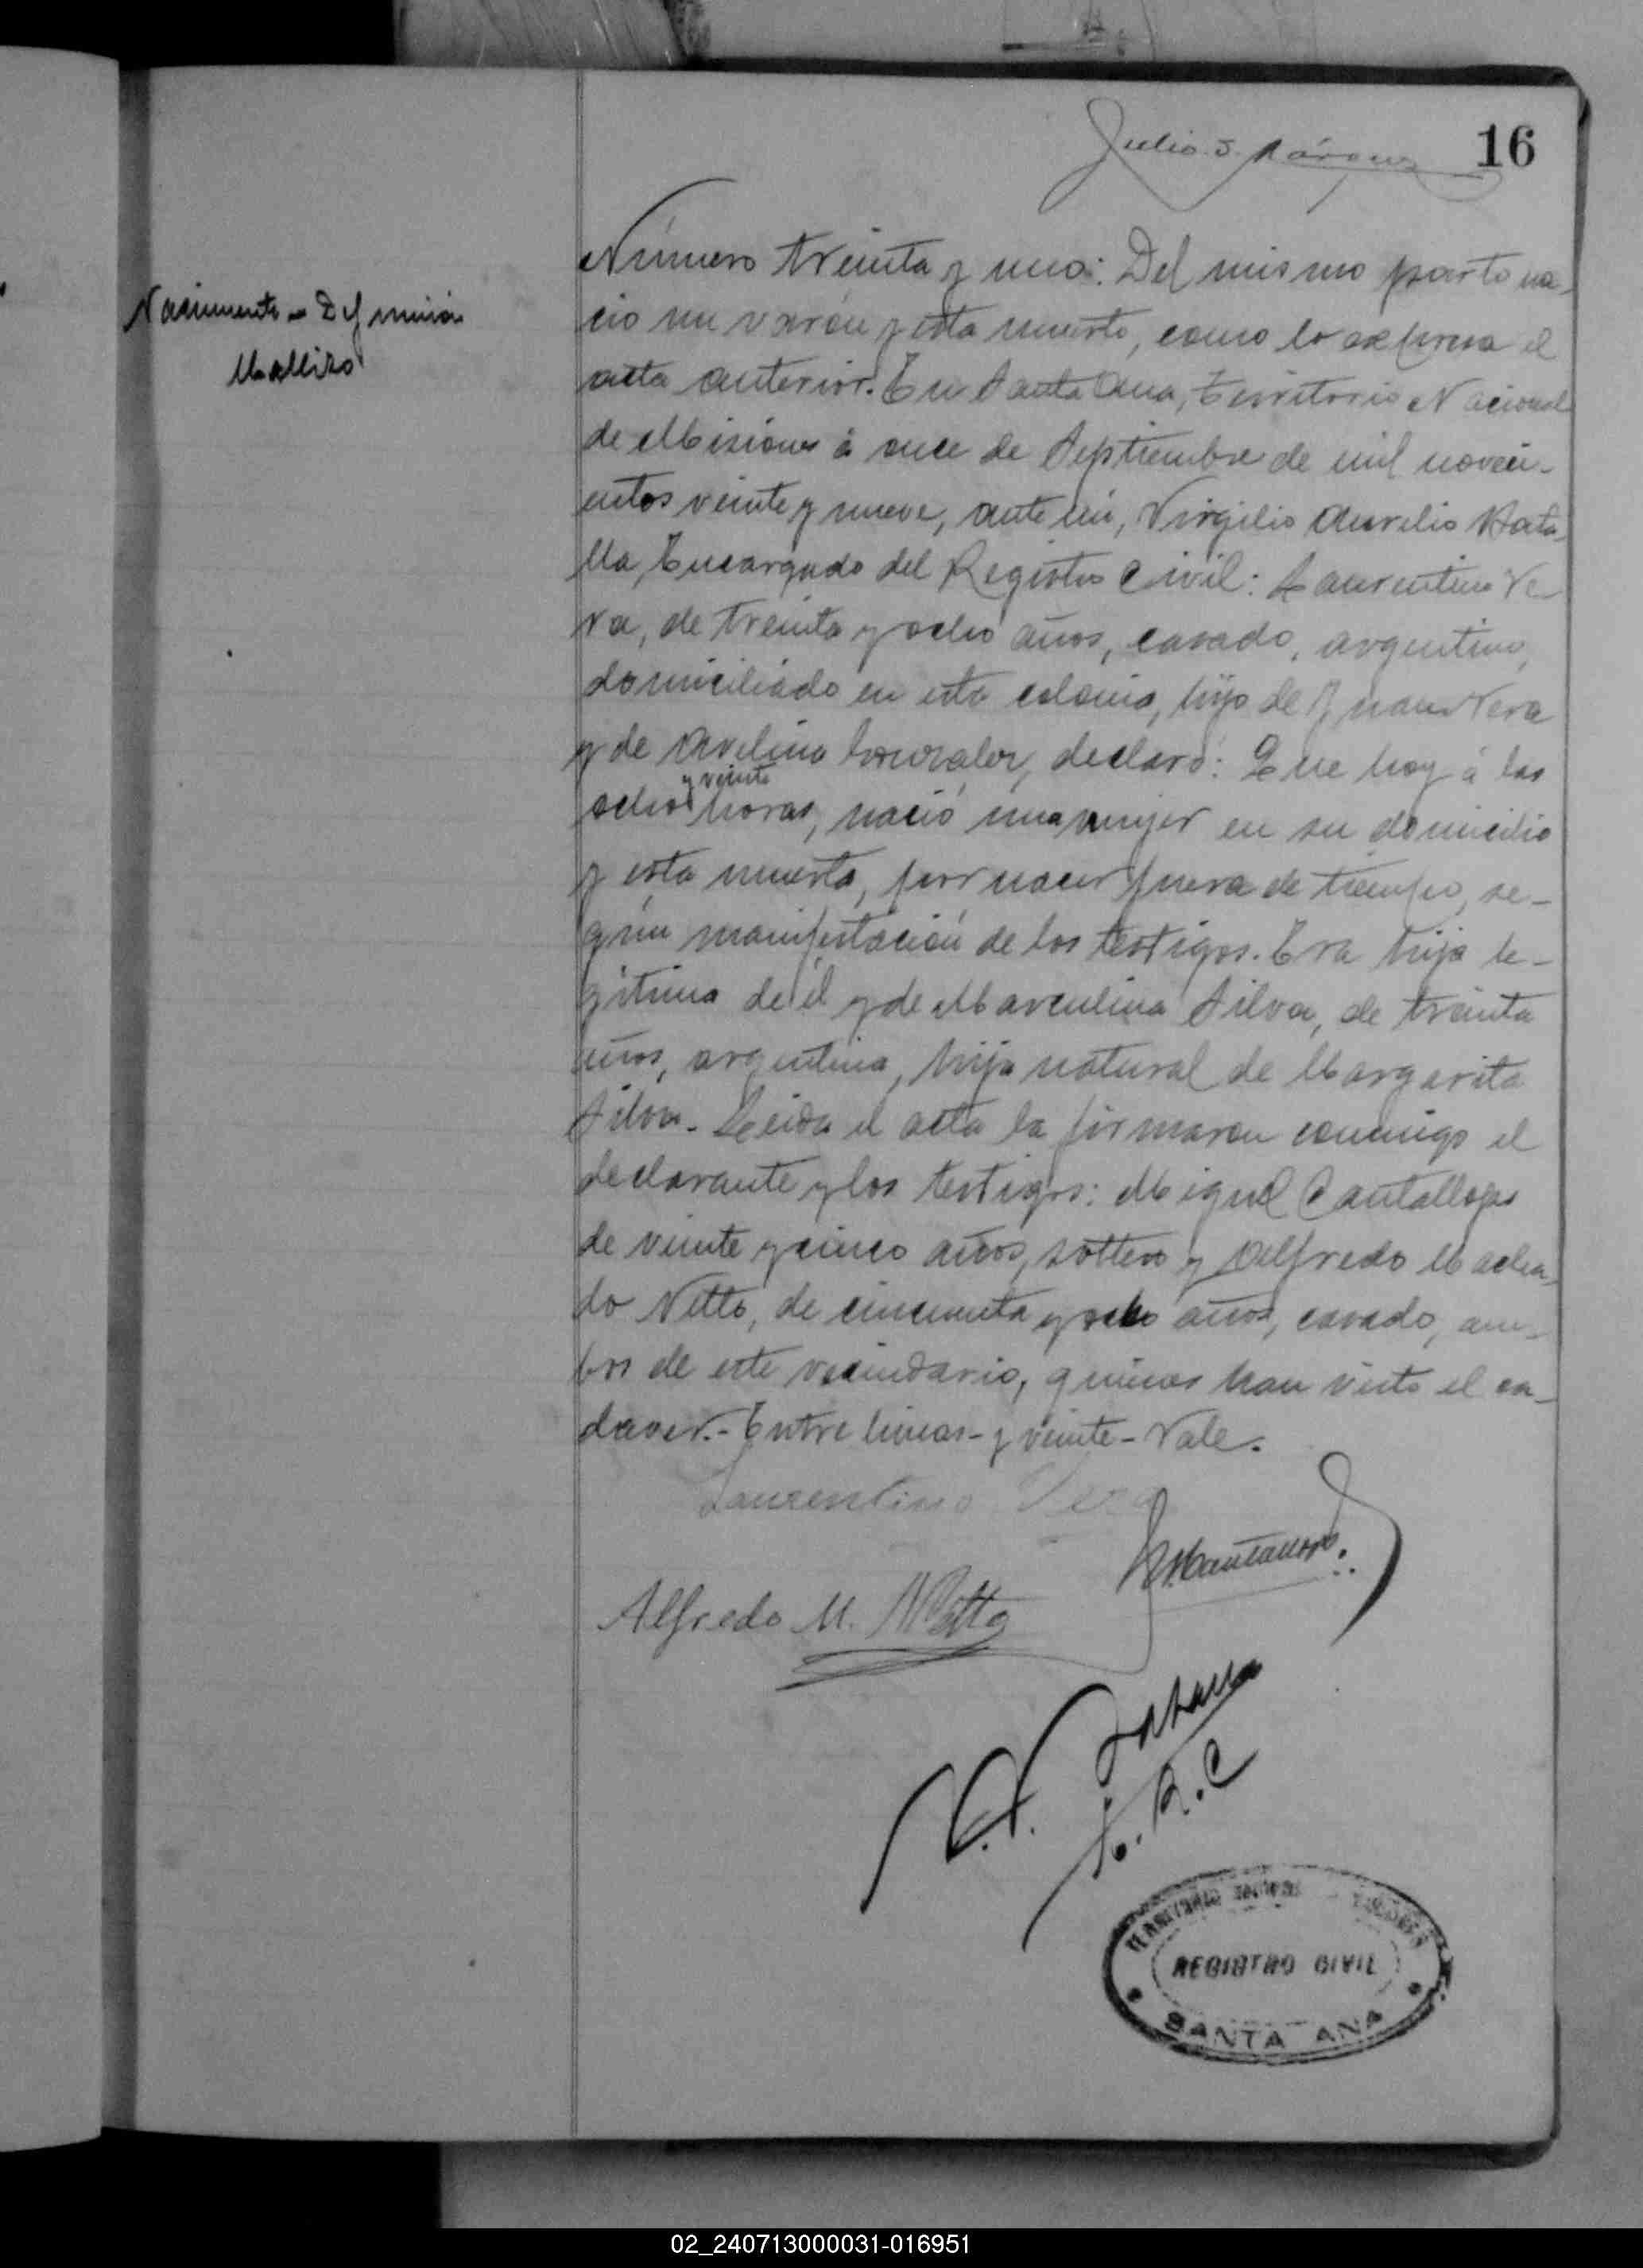 Julio J.
16
Nacimiento - Defunción
Mallizo
Número treinta y uno: Del mismo parto na-
cio un varón y esta muerto, como lo expresa el
acta anterior. En Santa Ana, Territorio Nacional
de Misiones á once de Septiembre de mil noveci-
entos veinte y nueve, ante mi, Virgilio Aurelio Bata-
lla, Encargado del Registro Civil: Laurentino Ve-
ra, de treinta y ocho años, casado, argentino,
domiciliado en esta colonia, hijo de Juan Vera
y de Avelina Gonzalez, declaró: Que hoy á las
y veinte
ocho horas, nació una mujer en su domicilio
y esta muerta, por nacer fuera de tiempo, se-
gún manifestación de los testigos. Era hija le-
gitima de él y de Marculina Silva, de treinta
años, argentina, hija natural de Margarita
Silva. Leida el acta la firmaron conmigo el
declarante y los testigos: Miguel Cantallops
de veinte y cinco años, soltero y Alfredo Macha-
do Netto, de cincuenta y ocho años, casado, am-
bos de este vecindario, quienes han visto el ca-
daver.- Entre lineas- y veinte- Vale.
Laurentino Vera
Alfredo M. Netto
V. A. Batalla
E. R. C
TERRITORIO NACIONAL MISIONES
REGISTRO CIVIL
SANTA ANA
02_240713000031-016951